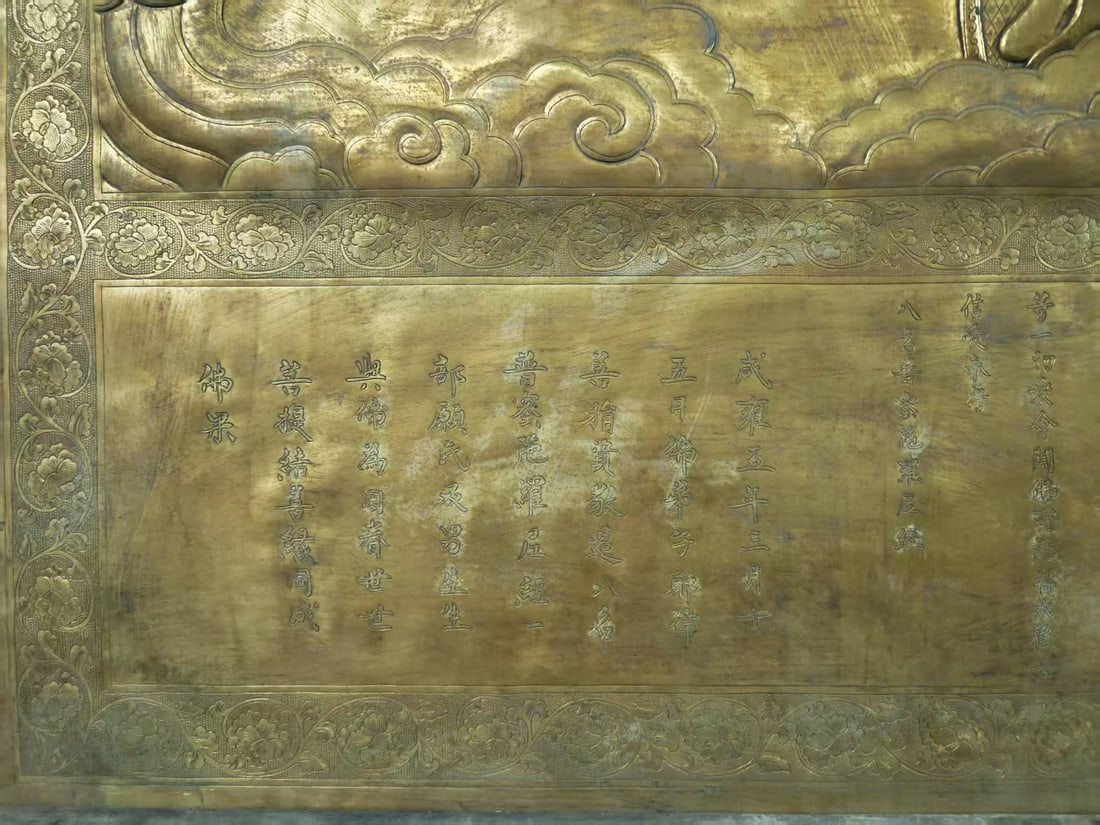 等一切眾會聞佛所說皆大歡喜
信受奉行
八名普密陀羅尼經
咸雍五年三月十
五日佛弟子耶律
善捨資敬造八名
普密陁羅尼經一
部願民及男生生
與佛為因眷世世
菩提結善緣同成
佛果